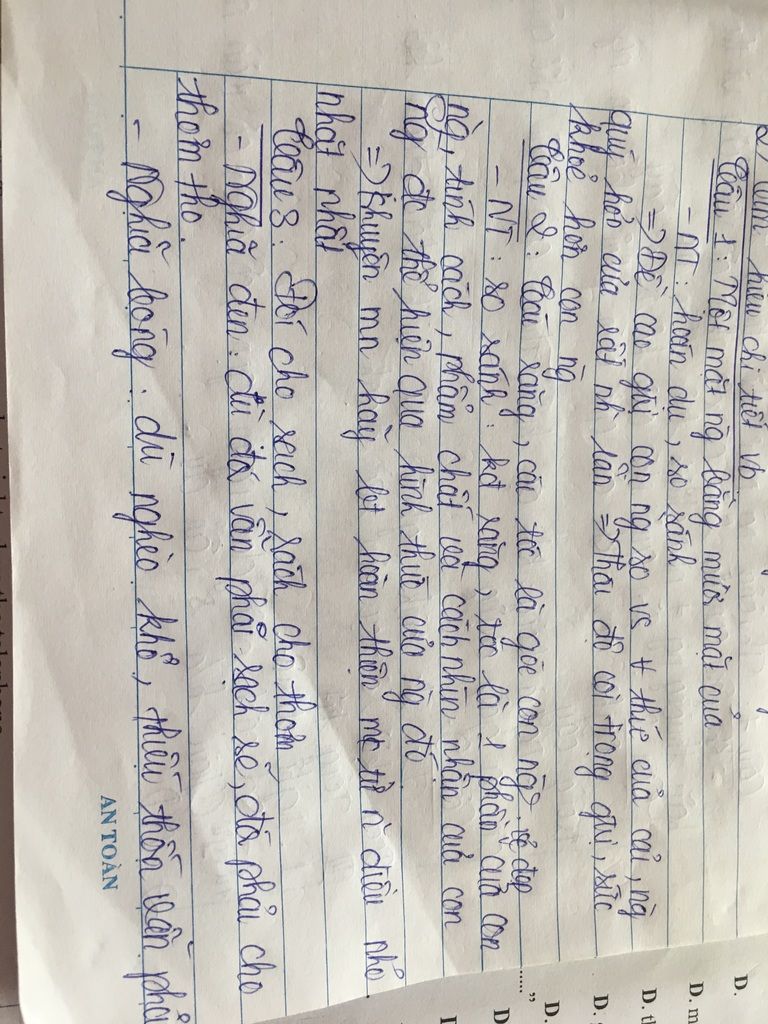 2) Tìm hiểu chi tiết vb
Câu 1: Một mặt ng bằng mười mặt của
- NT: hoán dụ, so sánh
=> Đề cao gtrị con ng so vs thứ của cải, ng
quý hơn của rất nh lần => Thái độ coi trọng gtrị, sức
khoẻ hơn con ng
Câu 2: Cái răng, cái tóc là góc con ng vẻ đẹp
- NT: so sánh: kđ răng, tóc là 1 phần của con
ng, tính cách, phẩm chất và cách nhìn nhận của con
ng đc thể hiện qua hình thức của ng đó
=> Khuyên mn hãy bt hoàn thiện mk từ n điều nhỏ
nhặt nhất
Câu 3: Đói cho sạch, rách cho thơm
- Nghĩa đen: dù đói vẫn phải sạch sẽ, đã phải cho
thơm tho.
- Nghĩa bóng: dù nghèo khổ, thiếu thốn vẫn phải
AN TOÀN
D.
D. m
D. t
D.
D.
D